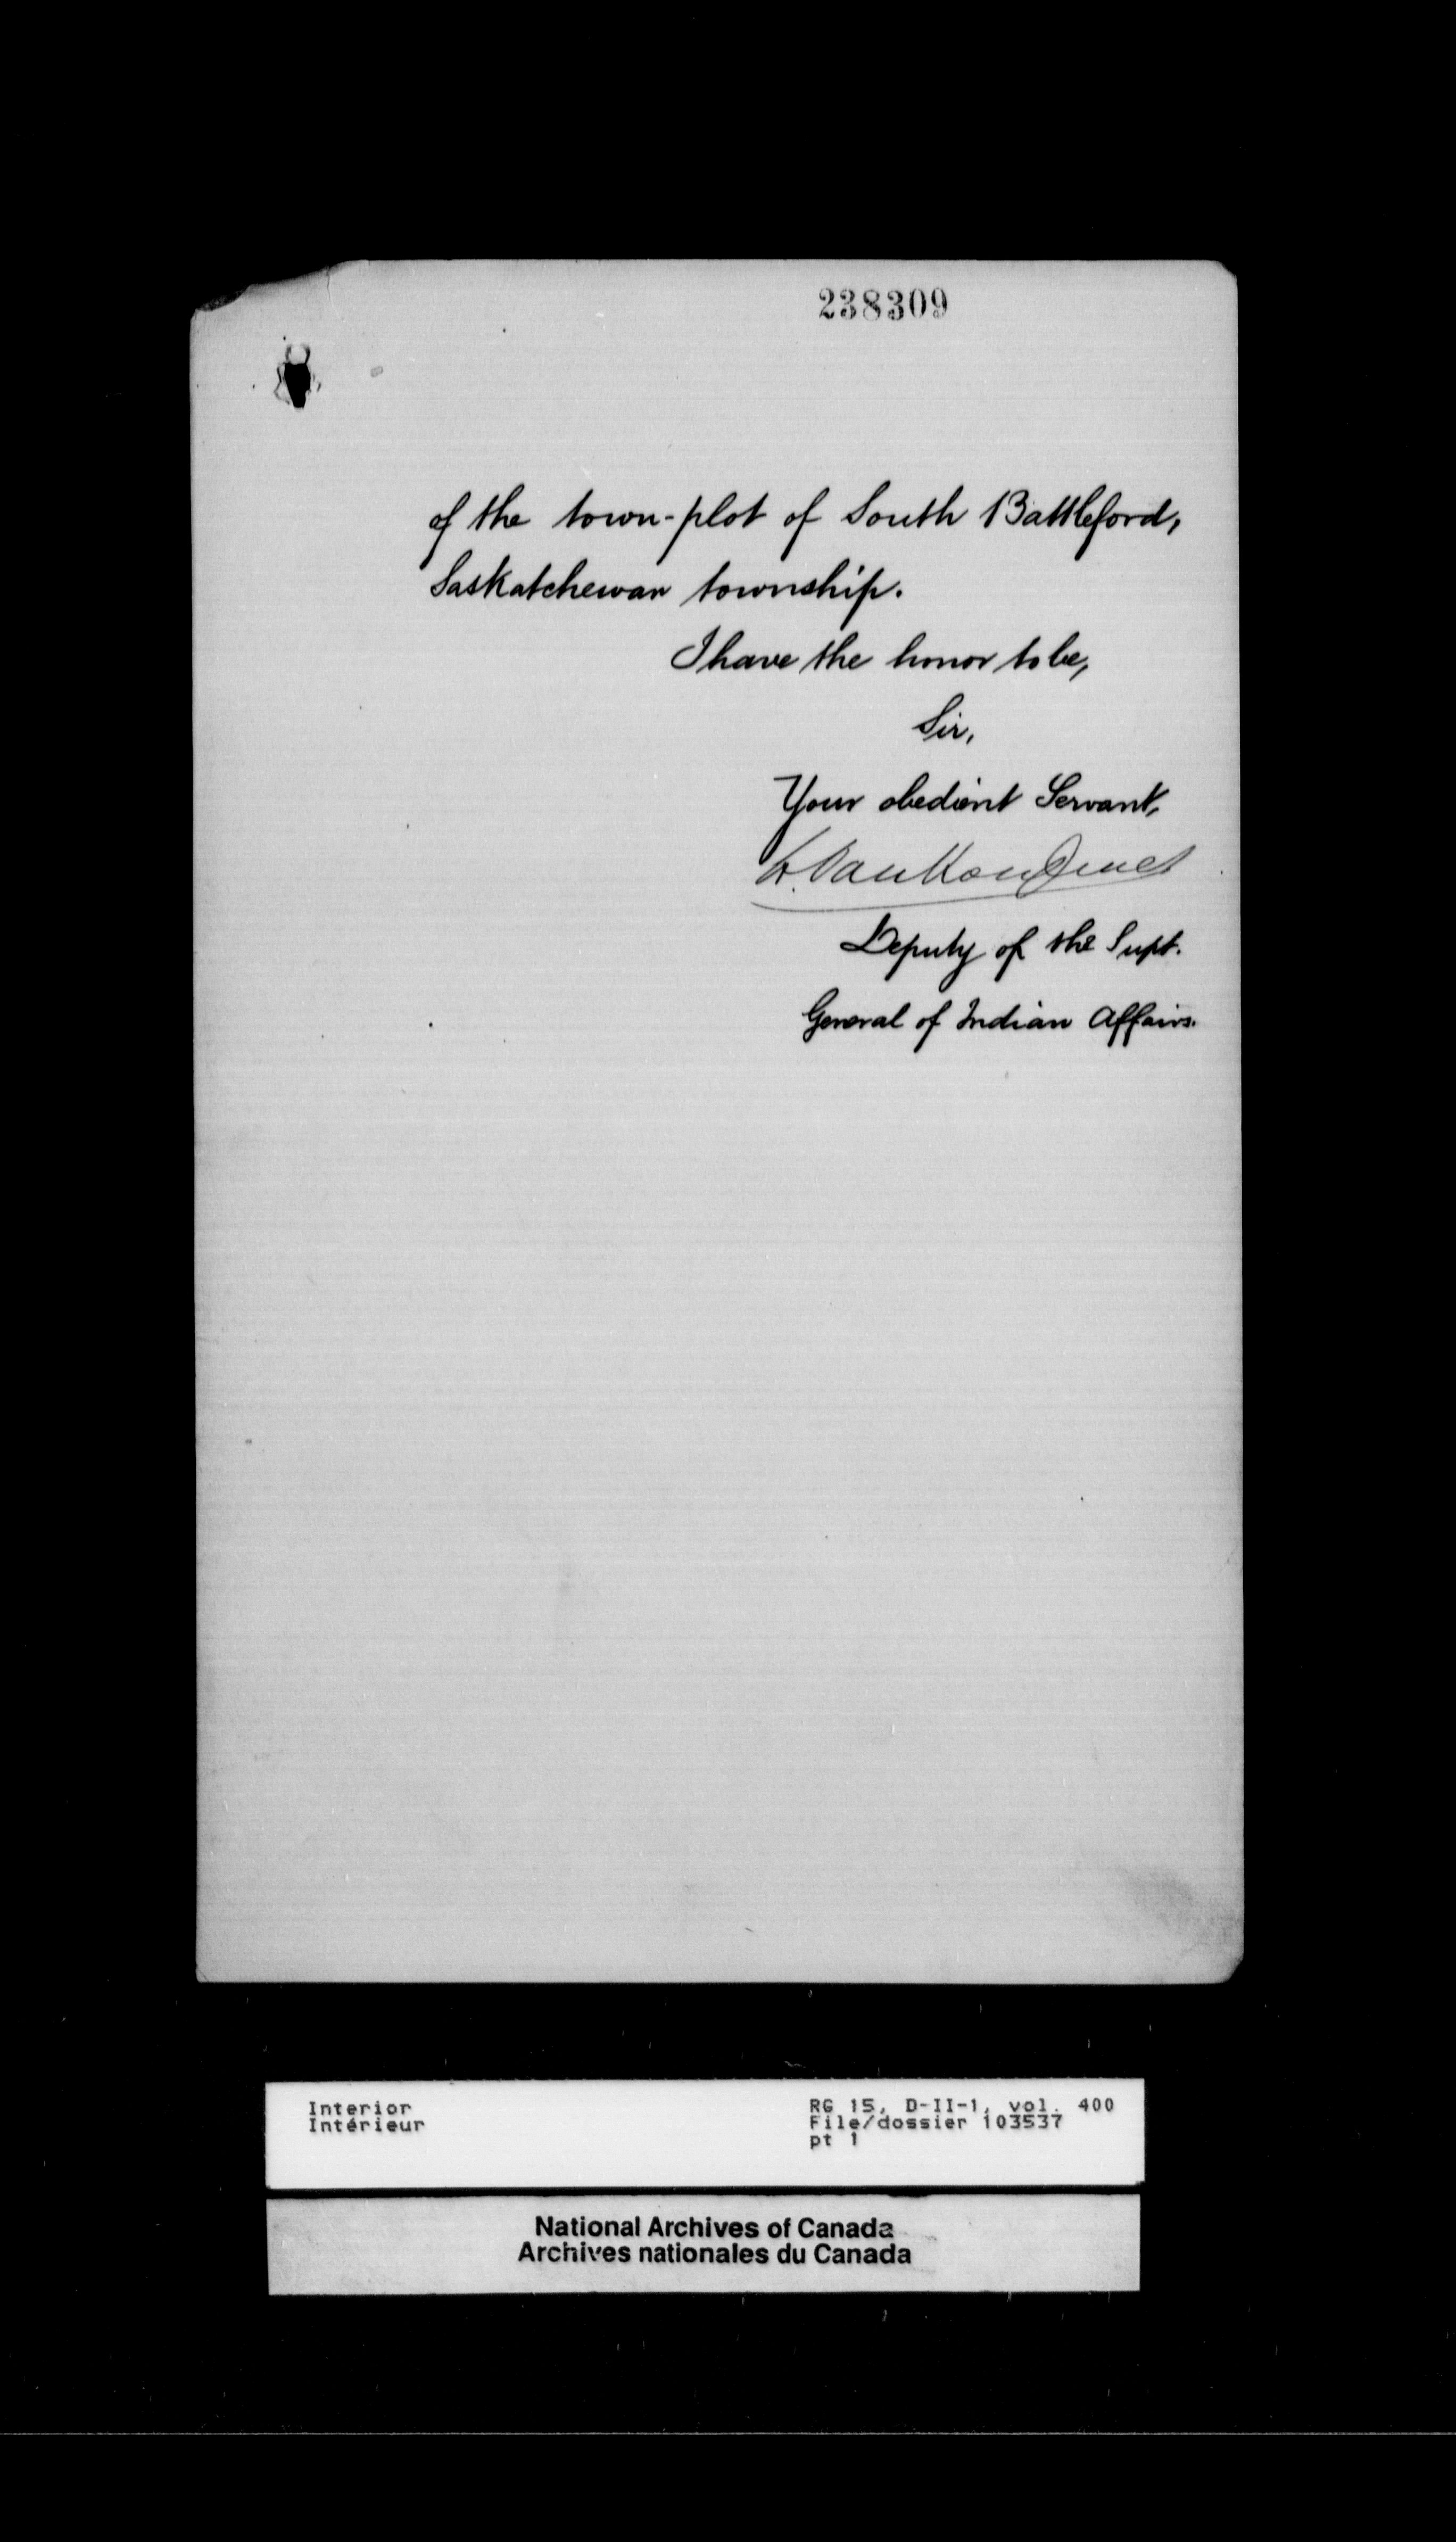 238309
of the town-plot of South Battleford,
Saskatchewan township.
I have the honor to be,
Sir,
Your obedient Servant,
L. VanKoughnet
Deputy of the Supt.
General of Indian Affairs.
Interior
Intérieur
RG 15, D-II-1, vol. 400
File/dossier 103537
pt 1
National Archives of Canada
Archives nationales du Canada